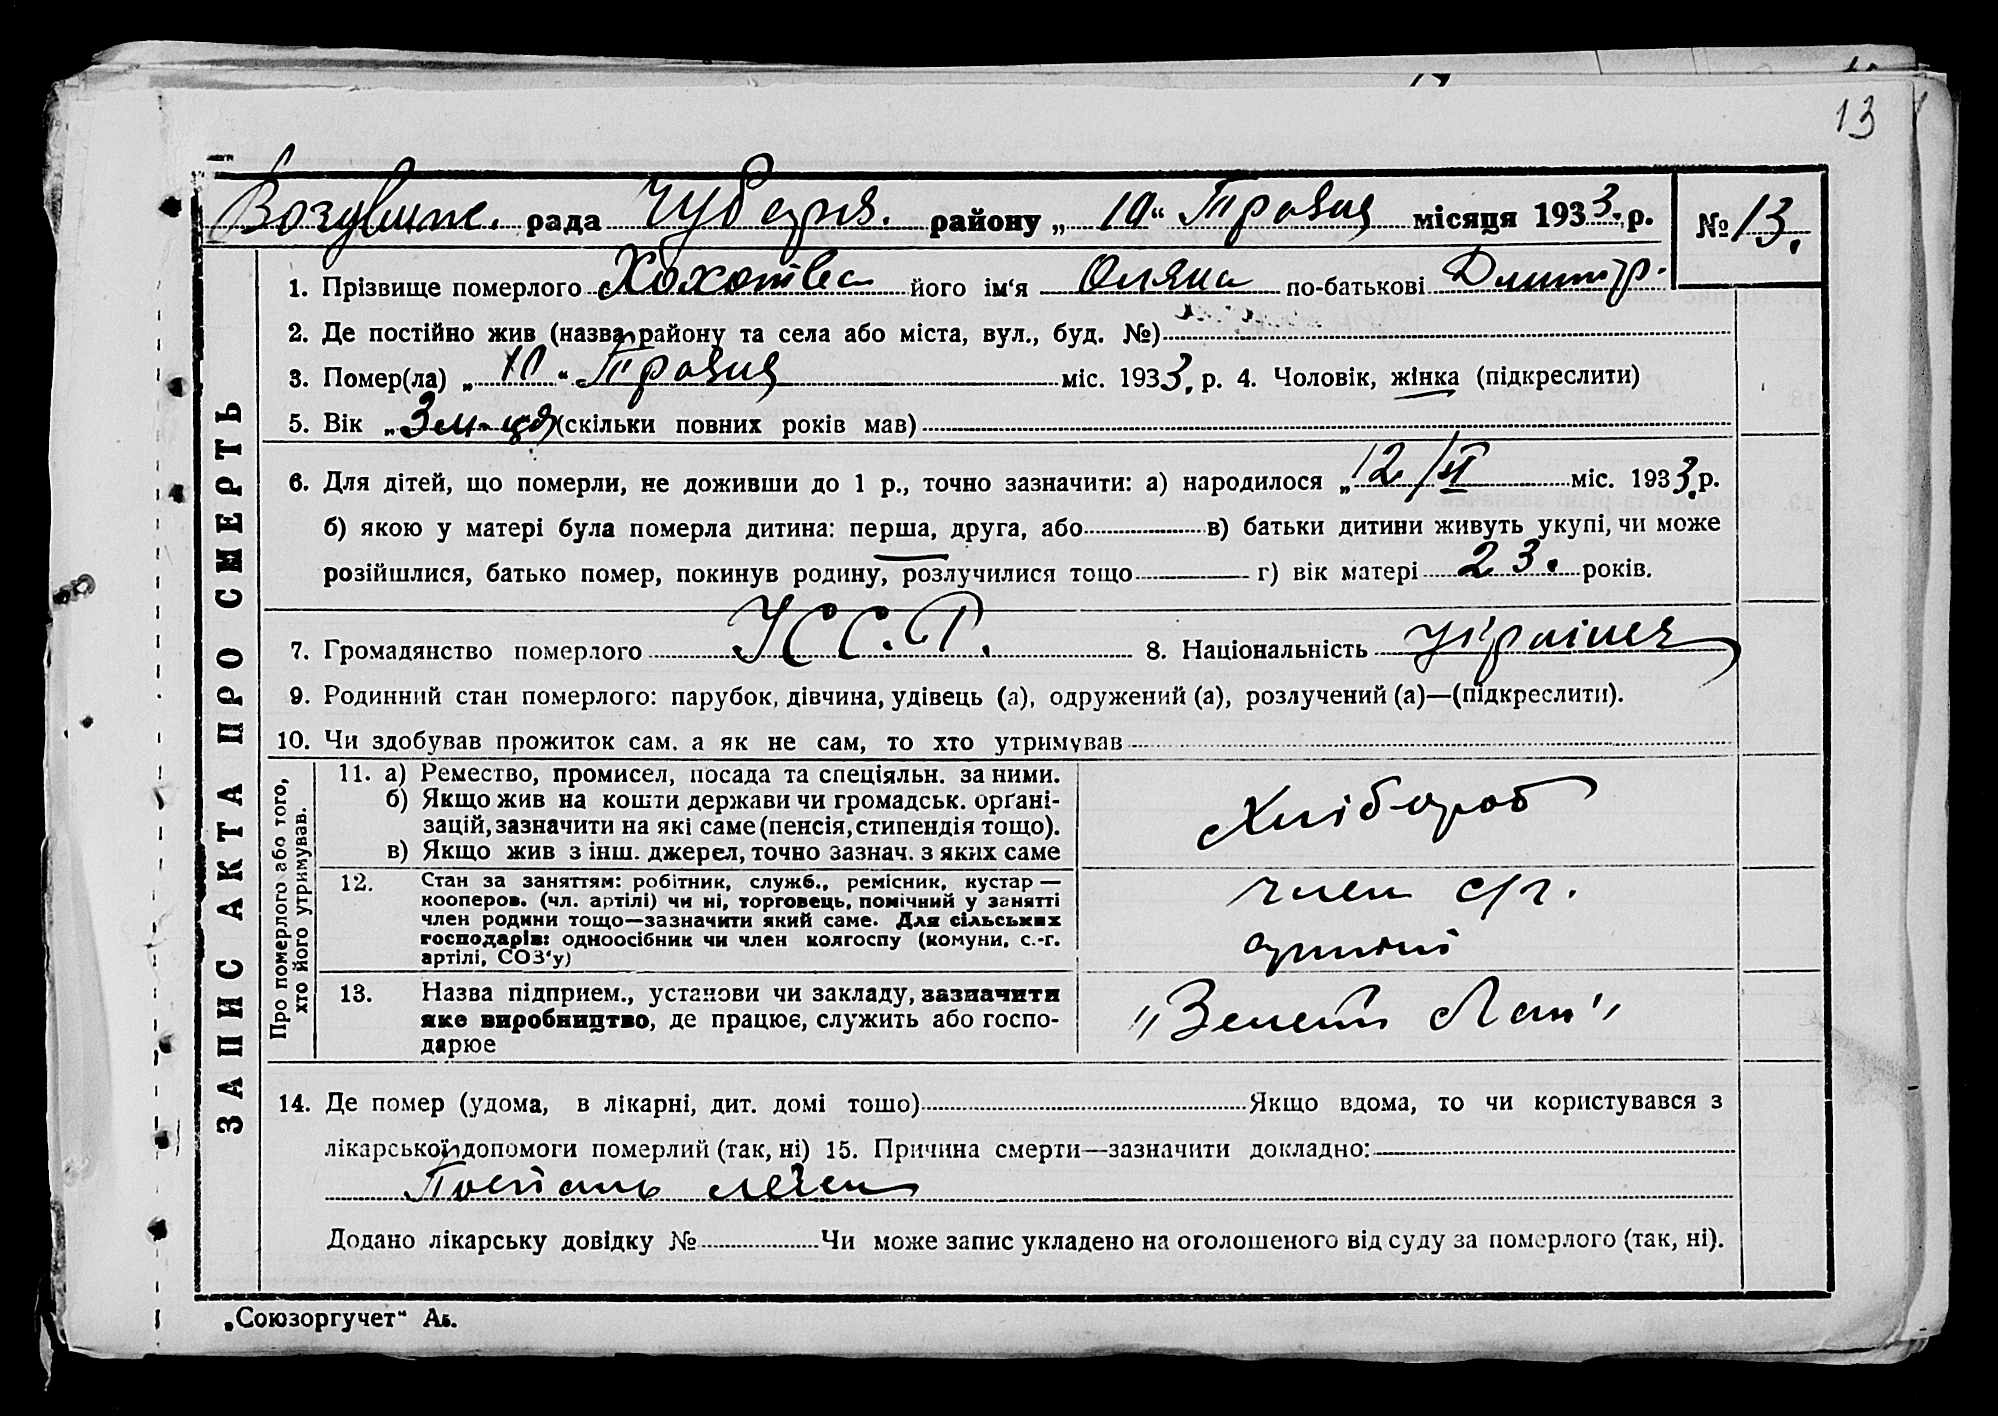 13
рада Чубарів. району „ 10 “ Травня місяця 1933. р. № 13.
ЗАПИС АКТА ПРО СМЕРТЬ
1. Прізвище померлого Хохотва його ім‘я Оляна по-батькові Дмитр.
2. Де постійно жив (назва району та села або міста, вул., буд. №)
3. Помер(ла) „ 10 “ Травня міс. 1933. р. 4. Чоловік, жінка (підкреслити)
5. Вік „ 3 м-ця (скільки повних років мав)
6. Для дітей, що померли, не доживши до 1 р., точно зазначити: а) народилося „ 12/II міс. 1933. р.
б) якою у матері була померла дитина: перша, друга, або в) батьки дитини живуть укупі, чи може
розійшлися, батько помер, покинув родину, розлучилися тощо г) вік матері 23. років.
7. Громадянство померлого УССР. 8. Національність Українка
9. Родинний стан померлого: парубок, дівчина, удівець (а), одружений (а), розлучений (а)—(підкреслити).
10. Чи здобував прожиток сам. а як не сам, то хто утримував
Про померлого або того,
хто його утримував.
11. а) Ремество, промисел, посада та спеціяльн. за ними.
б) Якщо жив на кошти держави чи громадськ. орґані-
зацій, зазначити на які саме (пенсія, стипендія тощо).
в) Якщо жив з інш. джерел, точно зазнач. з яких саме
Хлібороб
12. Стан за заняттям: робітник, служб., ремісник, кустар —
кооперов. (чл. артілі) чи ні, торговець, помічний у занятті
член родини тощо—зазначити який саме. Для сільських
господарів: одноосібник чи член колгоспу (комуни, с.-г.
артілі, СОЗ‘у)
член с/г.
артілі
13. Назва підприєм., установи чи закладу, зазначити
яке виробництво, де працює, служить або госпо-
дарює
"Зелений Лан"
14. Де помер (удома, в лікарні, дит. домі тощо) Якщо вдома, то чи користувався з
лікарської допомоги померлий (так, ні) 15. Причина смерти—зазначити докладно:
легень
Додано лікарську довідку № Чи може запис укладено на оголошеного від суду за померлого (так, ні).
„Союзоргучет“ Аб.